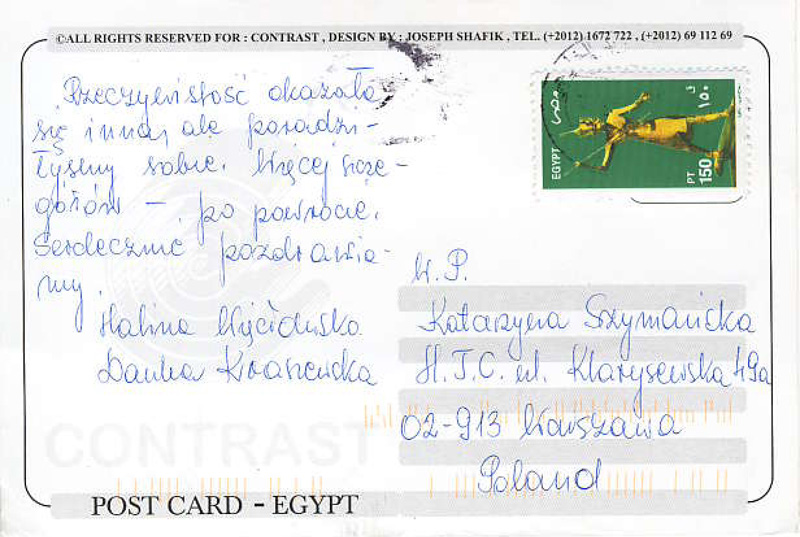 ©ALL RIGHTS RESERVED FOR : CONTRAST , DESIGN BY : JOSEPH SHAFIK , TEL. (+2012) 1672 722 , (+2012) 69 112 69
Rzeczywistość okazała
się inna, ale poradzi-
łyśmy sobie. Więcej szcze-
gółów – po powrocie.
Serdecznie pozdrawia-
my.
Halina
Danka Kraszewska
EGYPT
مصر
١٥٠
PT 150
W. P.
Katarzyna Szymańska
H.T.C. ul. Klarysewska 49a
02-913 Warszawa
Poland
CONTRAST
POST CARD - EGYPT